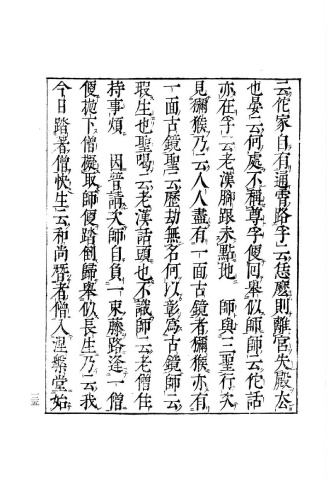 云佗家自有通霄路孚云恁麼則離宮失殿去
也晏云何處不稱尊孚便回舉似師師云佗話
亦在孚云老漢脚跟未點地 師與三聖行次
見獼猴乃云人人盡有一面古鏡者獼猴亦有
一面古鏡聖云歷劫無名何以彰為古鏡師云
瑕生也聖喝云老漢話頭也不識師云老僧住
持事煩 因普請次師自負一束藤路逢一僧
便抛下僧擬取師便踏倒歸舉似長生乃云我
今日踏著僧快生云和尚替者僧入涅槃堂始
三五